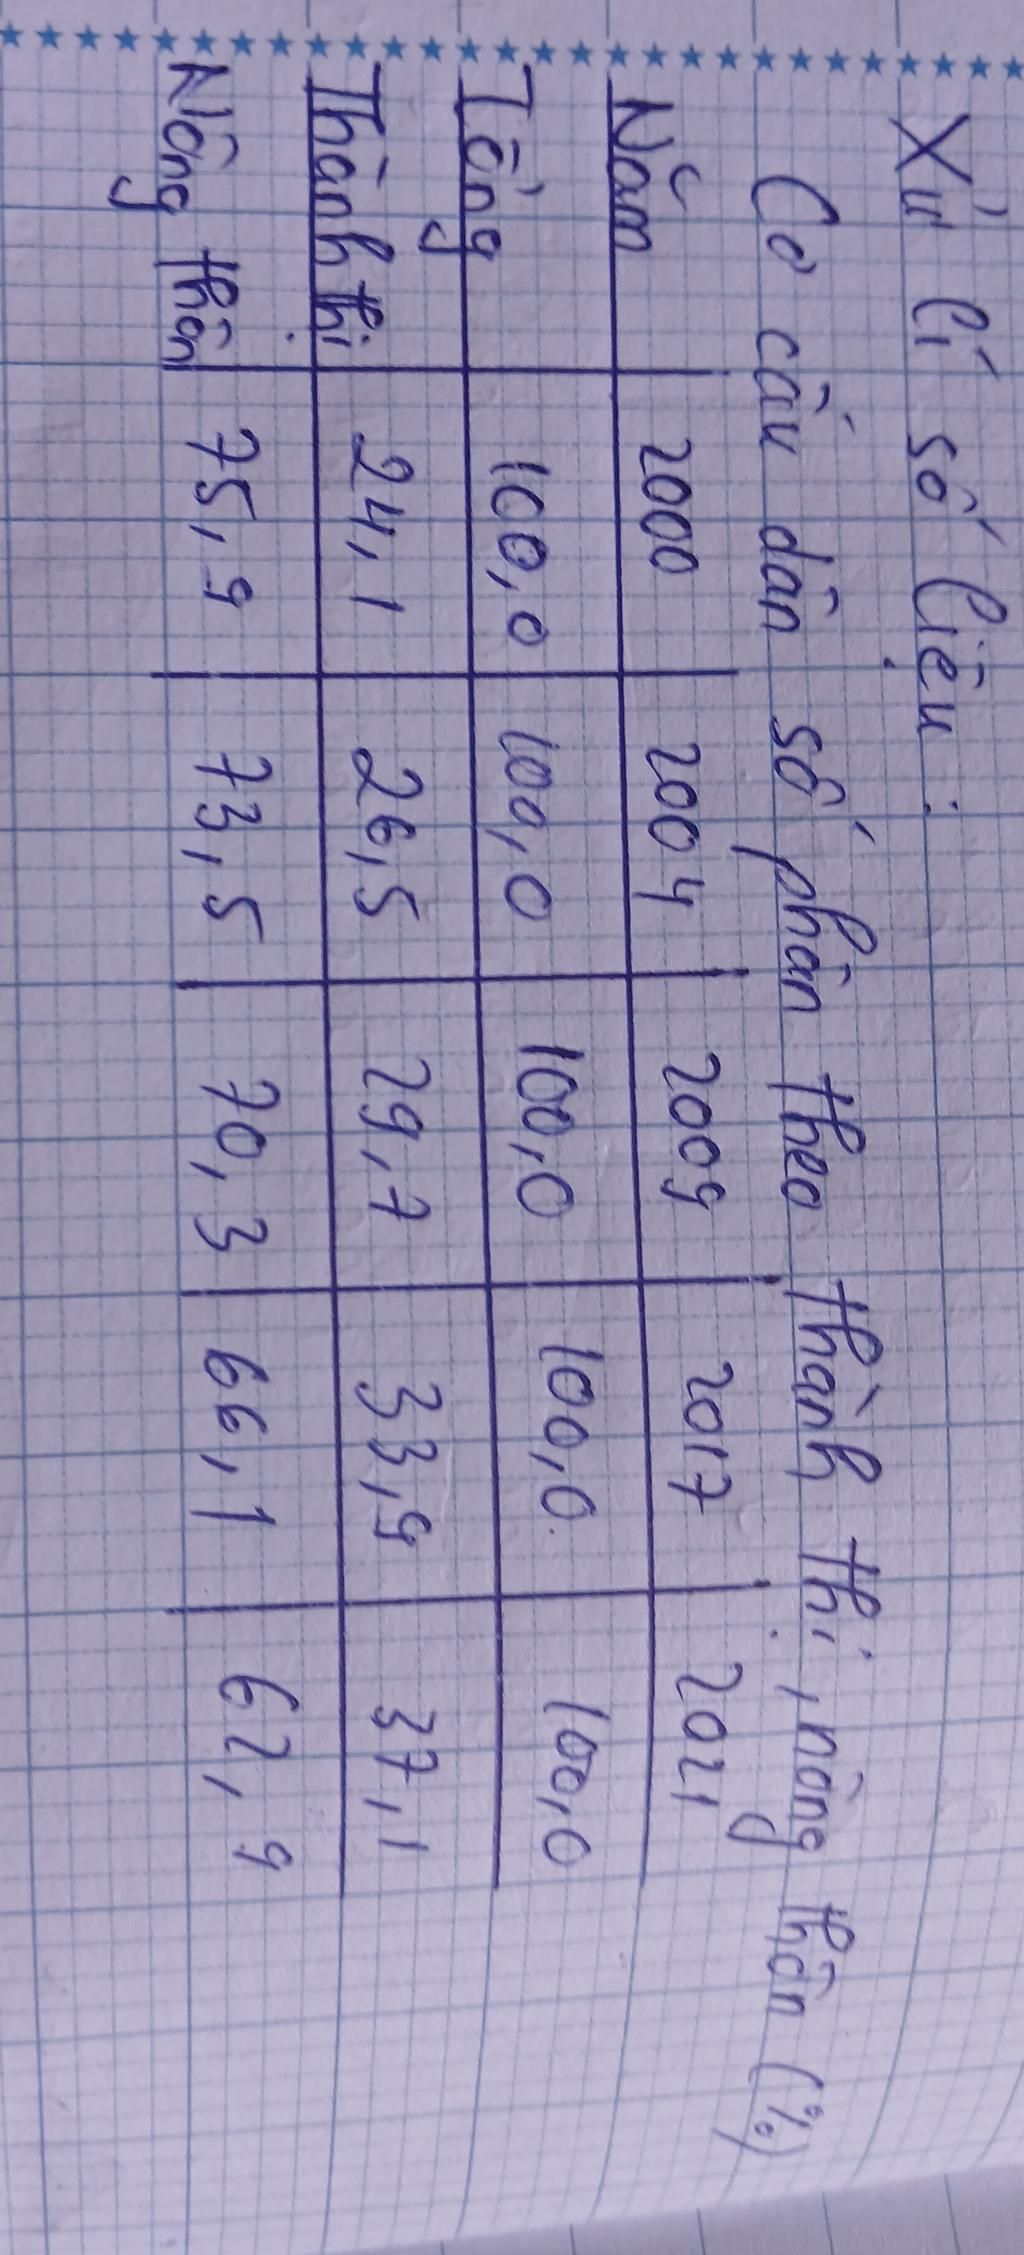 Xử lí số liệu:
Cơ cấu dân số phân theo thành thị, nông thôn (%)
Năm 2000 2004 2009 2017 2021
Tổng 100,0 100,0 100,0 100,0 100,0
Thành thị 24,1 26,5 29,7 33,9 37,1
Nông thôn 75,9 73,5 70,3 66,1 62,9